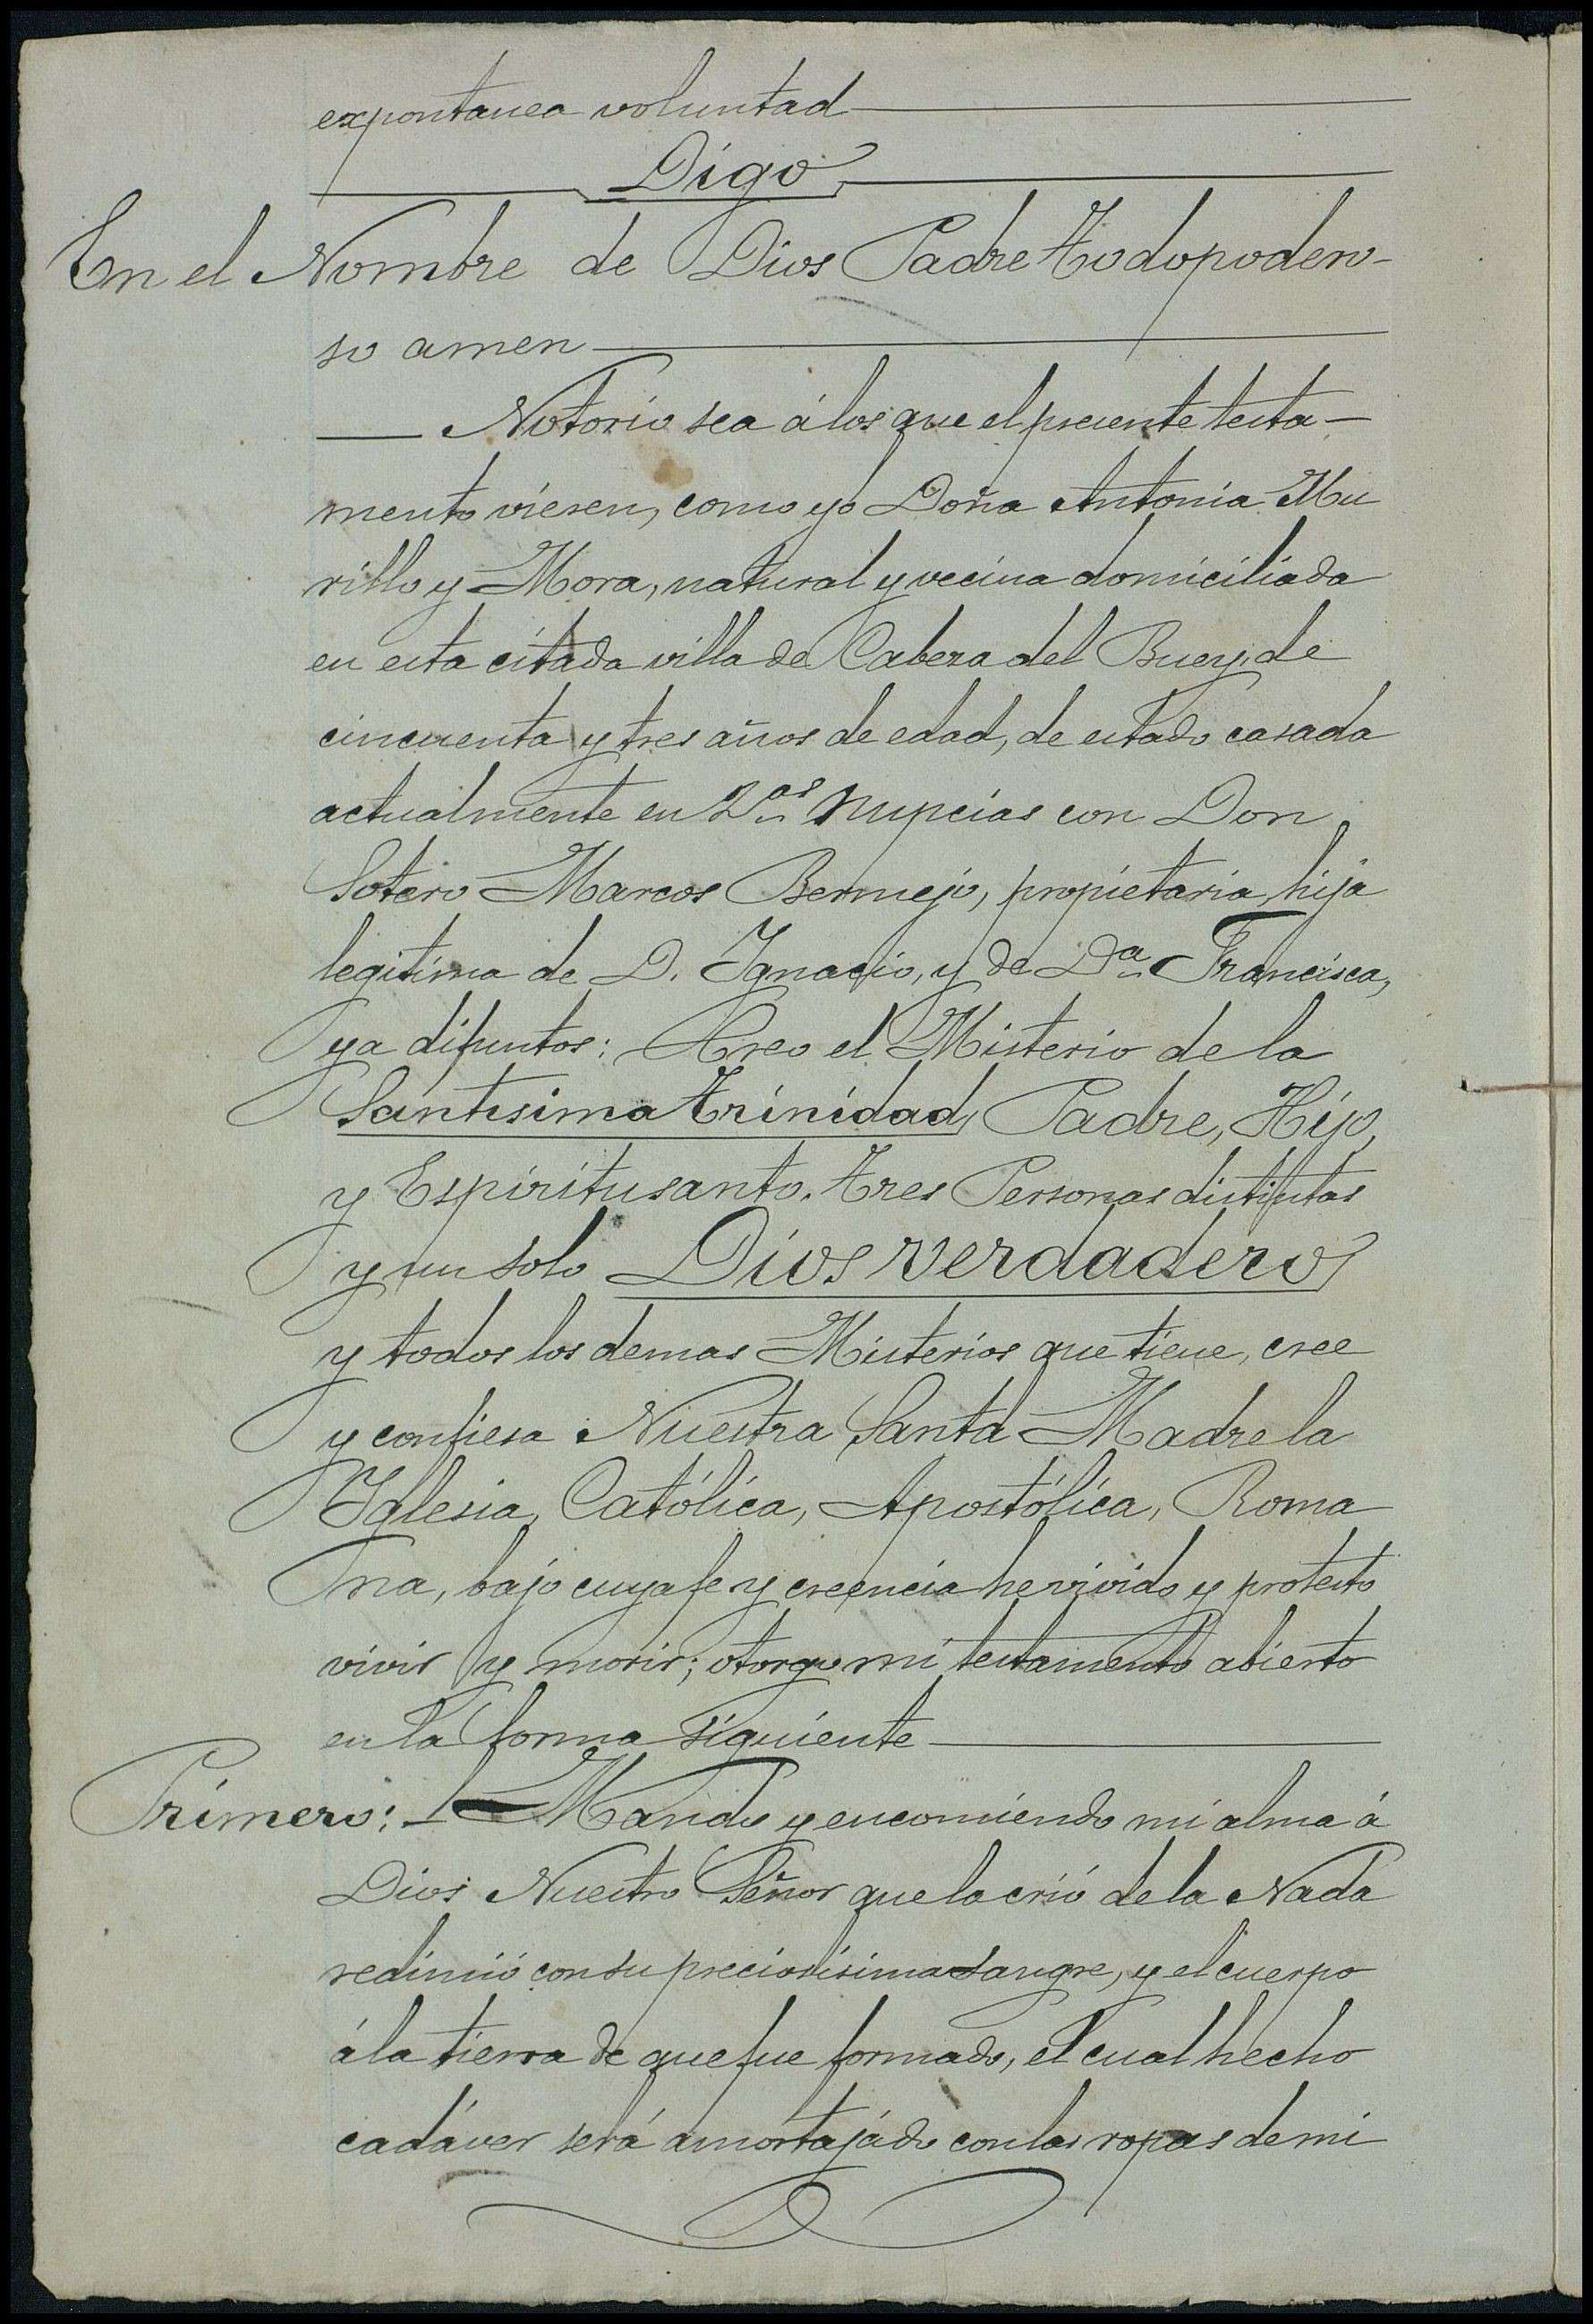 expontanea voluntad
Digo
En el Nombre de Dios Padre Todopodero-
so amen
Notorio sea á los que el presente testa-
mento viesen, como yo Doña Antonia Mu
rillo y Mora, natural y vecina domiciliada
en esta citada villa de Cabeza del Buey, de
cincuenta y tres años de edad, de estado casada
actualmente en 2as nupcias con Don
Sotero Marcos Bermejo, propietaria, hija
legitima de D. Ignacio, y de Da Francisca,
ya difuntos: Creo el Misterio de la
Santisima Trinidad, Padre, Hijo,
y Espiritusanto. Tres Personas distintas
y un solo Dios verdadero
y todos los demas Misterios que tiene, cree
y confiesa Nuestra Santa Madre la
Yglesia, Católica, Apostólica, Roma
na, bajo cuya fe y creencia he vivido y protesto
vivir y morir; otorgo mi testamento abierto
en la forma siguiente
Primero: Mando y encomiendo mi alma á
Dios Nuestro Señor que la crió de la Nada
redimió con su preciosisima sangre, y el cuerpo
á la tierra de que fue formado, el cual hecho
cadáver será amortajádo con las ropas de mi